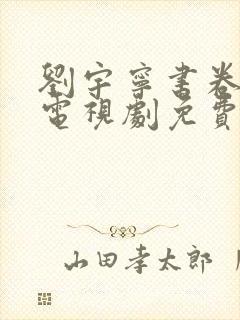 劉宇寧書卷
電視劇免費
山田孝太郎